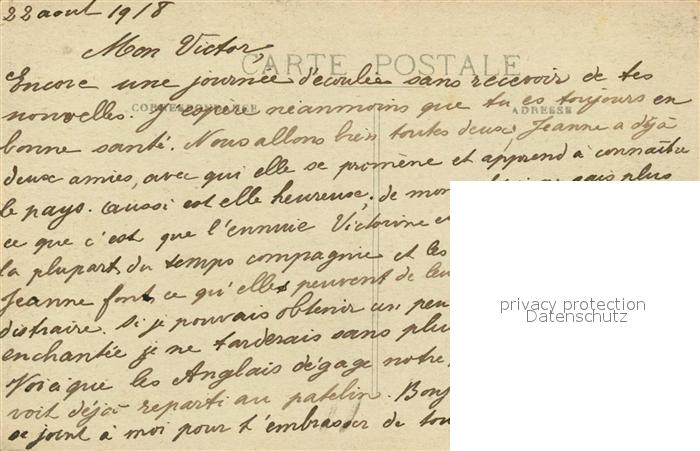 22 aout 1918
Mon Victor,
CARTE POSTALE
Encore une journée d'écoulée sans recevoir de tes
nouvelles. J'espère néanmoins que tu es toujours en
CORRESPONDANCE
ADRESSE
bonne santé. Nous allons bien toutes deux, Jeanne a déjà
deux amies, avec qui elle se promène et apprend à connaître
le pays. aussi est elle heureuse; de mon plus
ce que c'est que l'ennuie Victorine
la plupart du temps compagnie et les
Jeanne font ce qu'elles peuvent de leu
distraire. Si je pouvais obtenir un peu
enchantée je ne tarderais sans plu
Voici que les Anglais dégage notre
voit déjà reparti au patelin. Bonj
se joint à moi pour t'embrasser de tou
privacy protection
Datenschutz